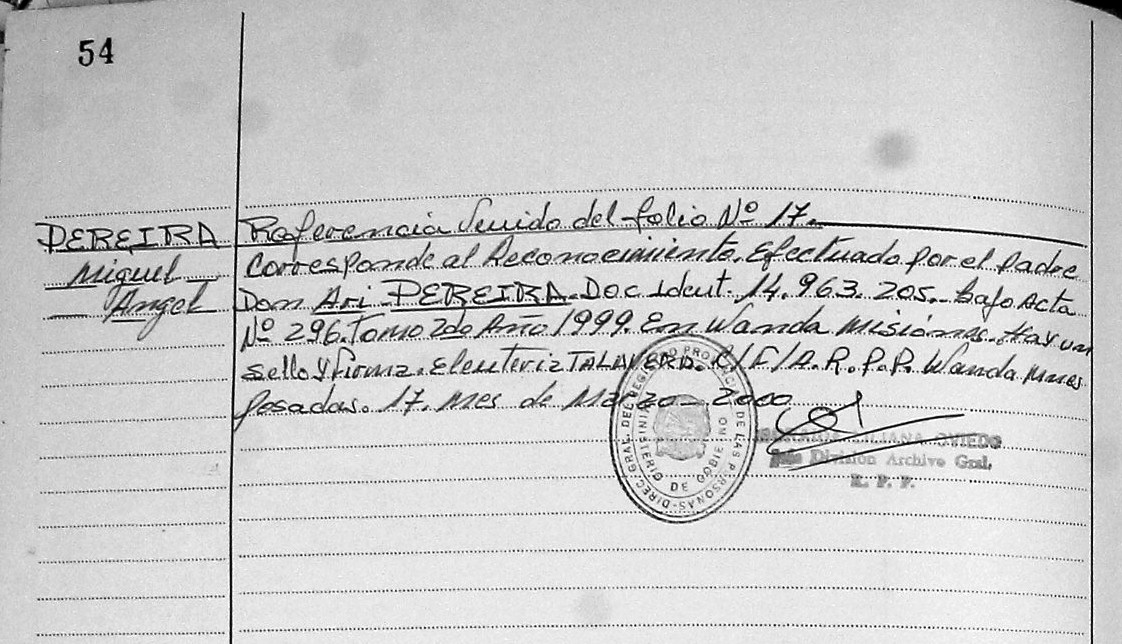 54
PEREIRA
Miguel
Angel
Referencia Venido del folio Nº 17.
Corresponde al Reconocimiento. Efectuado por el padre
Don Ari PEREIRA. Doc Ident. 14.963.205. bajo Acta
Nº 296. Tomo 2do Año 1999. En Wanda Misiones. Hay un
sello y firma. Eleuteria TALAVERA. E/F/A.R.P.P. Wanda Mnes
Posadas. 17. Mes de Marzo 2000
DIREC. GRAL. DEL REGISTRO PROVINCIAL DE LAS PERSONAS
MINISTERIO DE GOBIERNO
LILIANA OVIEDO
Jefe División Archivo Gral.
R. P. P.